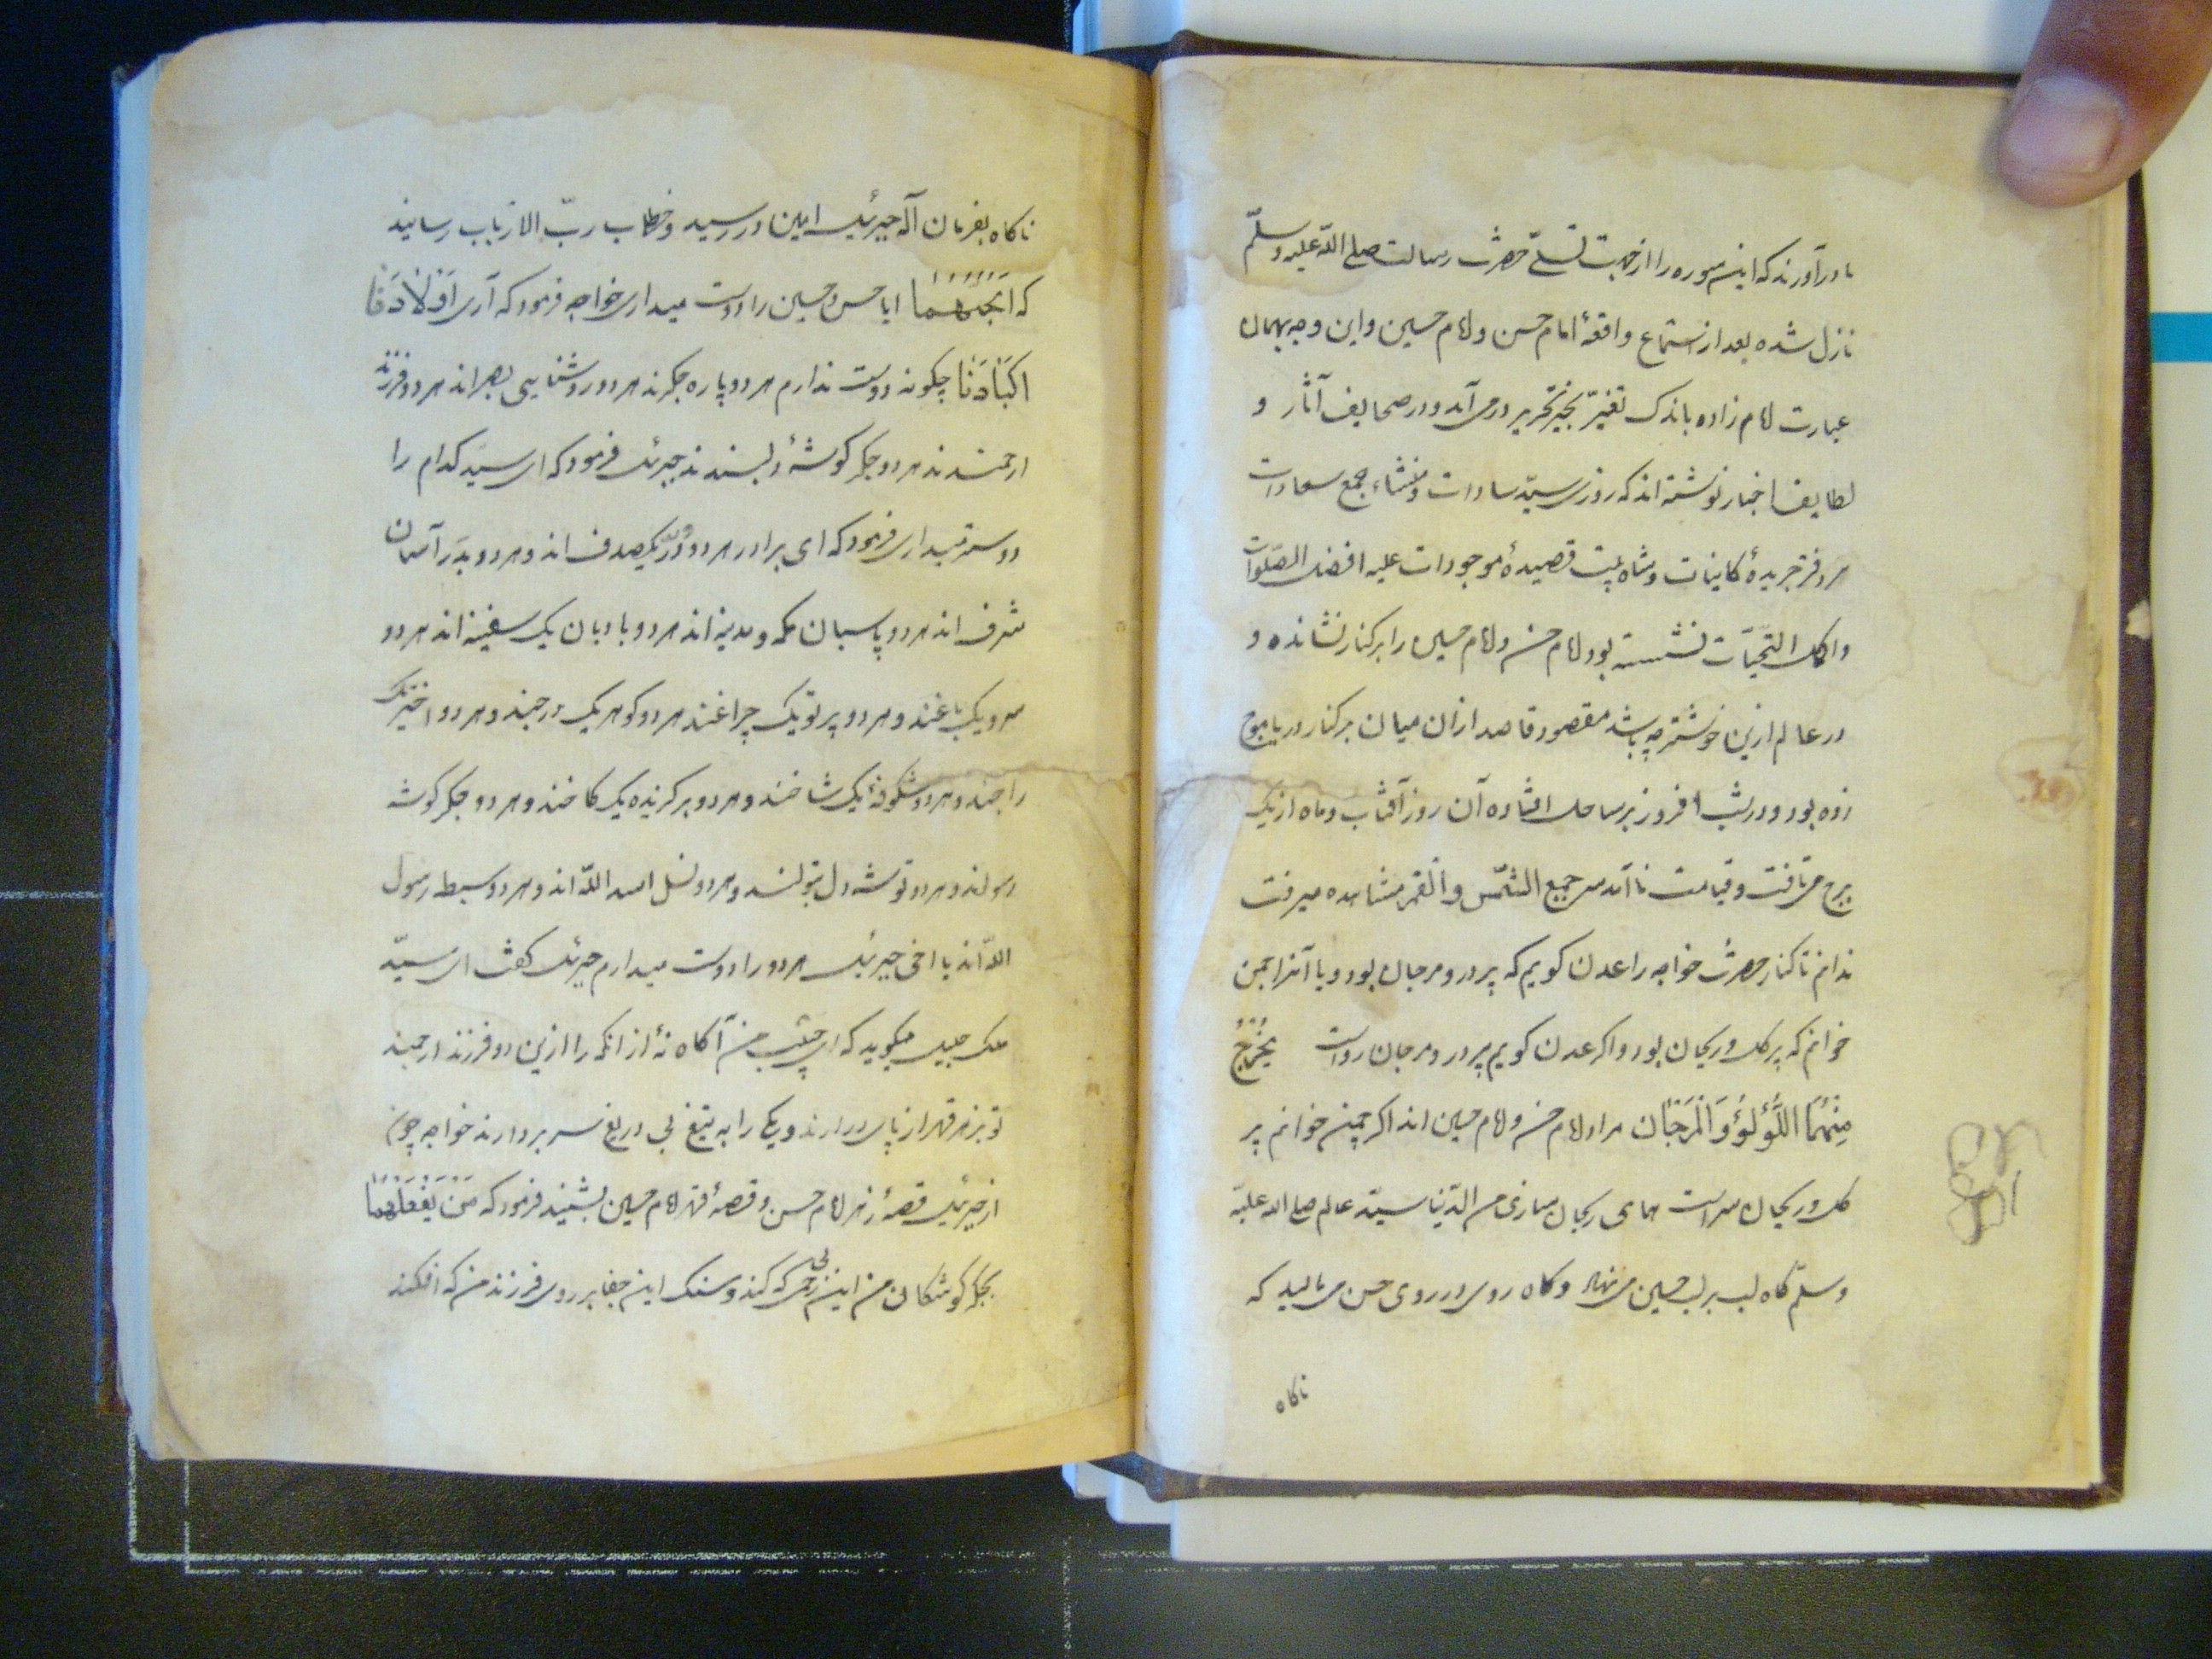 مادرآورند که این سوره را از جهت تسلّی حضرت رسالت صلی الله علیه وسلّم
نازل شده بعد از استماع واقعهٔ امام حسن و امام حسین و این وجه بهمان
عبارت امام زاده باندک تغیّر بحیّز تحریر در می آید و در صحایف آثار و
لطایف اخبار نوشته اند که روزی سیّد سادات و منشاء جمع سعادات
سر دفتر جریدهٔ کاینات و شاه بیت قصیدهٔ موجودات علیه افضل الصّلوات
و اکمل التّحیّات نشسته بود امام حسن و امام حسین را بر کنار نشانده و
در عالم ازین خوشتر چه باشد مقصود قاصد از آن میان بر کنار دریا موج
زده بود و در شب افروز بر ساحل افتاده آن روز آفتاب و ماه از یک
برج می تافت و قیامت ناآمده سر جمع الشّمس والقمر مشاهده میرفت
ندانم تا کنار حضرت خواجه را عدن کویم که پر در و مرجان بود و یا آنرا چمن
خوانم که پر کل و ریحان بود و اکر عدن کویم پر در و مرجان رواست یَخْرُجُ
مِنْهُمَا اللُّؤْلُؤُ وَالْمَرْجَان مراد امام حسن و امام حسین اند اکر چمن خوانم پر
کل و ریحان سراست هما ریحانتای من الدّنیا سیّد عالم صلی الله علیه
وسلّم کاه لب بر لب حسین می نهاد و کاه روی در روی حسن می مالید که
ناکاه
ناکاه بفرمان اله جبرئیل امین در رسید و خطاب ربّ الارباب رسانید
که اتحبّهما ایا حسن و حسین را دوست میداری خواجه فرمود که آری اَوْلَادُنَا
اکبَادُنَا چکونه دوست ندارم هر دو پاره جکرند هر دو روشنایی بصراند هر دو فرزند
ارجمندند هر دو جکر کوشهٔ دلبندند جبرئیل فرمود که ای سیّد کدام را
دوستر میداری فرمود که ای برادر هر دو دُرّ یکصدف اند و هر دو بدر آسمان
شرف اند هر دو پاسبان مکه و مدینه اند هر دو بادبان یک سفینه اند هر دو
سرو یک باغند و هر دو پرتو یک چراغند هر دو کوهر یک درجند و هر دو اختر یک
برجند و هر دو شکوفهٔ یک شاخند و هر دو برکزیده یک کاخند و هر دو جکر کوشه
رسولند و هر دو توشه دل بتولند و هر دو نسل اسد اللّه اند و هر دو سبط رسول
اللّه اند یا اخی جبرئیل هر دو را دوست میدارم جبرئیل کفت ای سیّد
ملک جلیل میکوید که ای حبیب من آکاه نهٔ از انکه را ازین دو فرزند ارجمند
تو بزهر قهر از پای در ارند و یکی را به تیغ بی دریغ سر بردارند خواجه چون
از جبرئیل قصهٔ زهر امام حسن و قصهٔ قهر امام حسین بشنید فرمود که مَنْ یَفْعَلُهُمَا
بجکر کوشکان من این بی رحمی که کند و سنک این جفا بر روی فرزند من که افکند